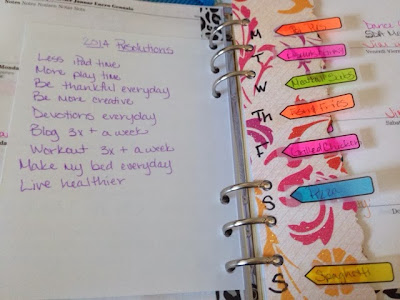 Notes
2014 Resolutions
Less iPad time
More play time
Be thankful everyday
Be more creative
Devotions everyday
Blog 3x + a week
Workout 3x + a week
Make my bed everyday
Live healthier
M
T
W
Th
F
S
S
Grilled Chicken
Pizza
Spaghetti